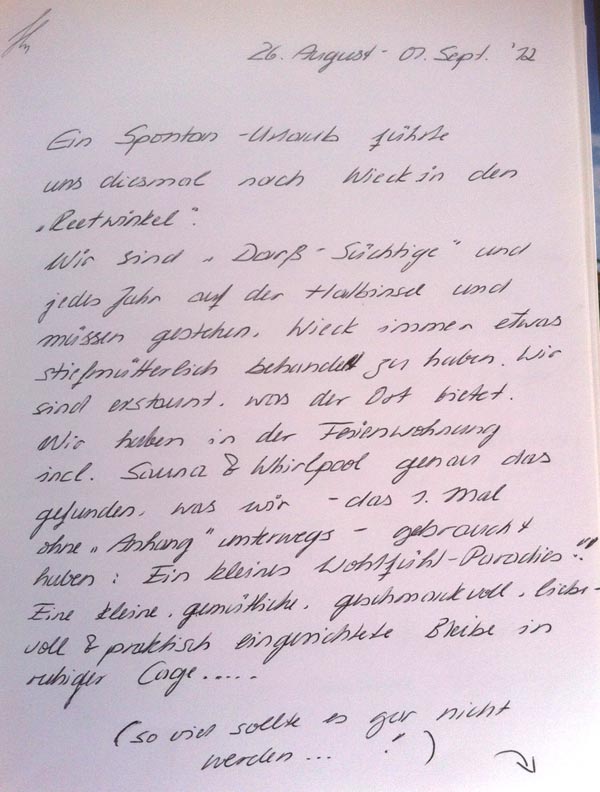 26. August - 01. Sept. '12
Ein Spontan-Urlaub führte
uns diesmal nach Wieck in den
„Reetwinkel".
Wir sind „Darß-Süchtige" und
jedes Jahr auf der Halbinsel und
müssen gestehen, Wieck immer etwas
stiefmütterlich behandelt zu haben. Wir
sind erstaunt, was der Ort bietet.
Wir haben in der Ferienwohnung
incl. Sauna & Whirlpool genau das
gefunden, was wir - das 1. Mal
ohne „Anhang" unterwegs - gebraucht
haben: Ein kleines Wohlfühl-Paradies!
Eine kleine, gemütliche, geschmackvoll, liebe-
voll & praktisch eingerichtete Bleibe in
ruhiger Lage.....
(so viel sollte es gar nicht
werden... !)